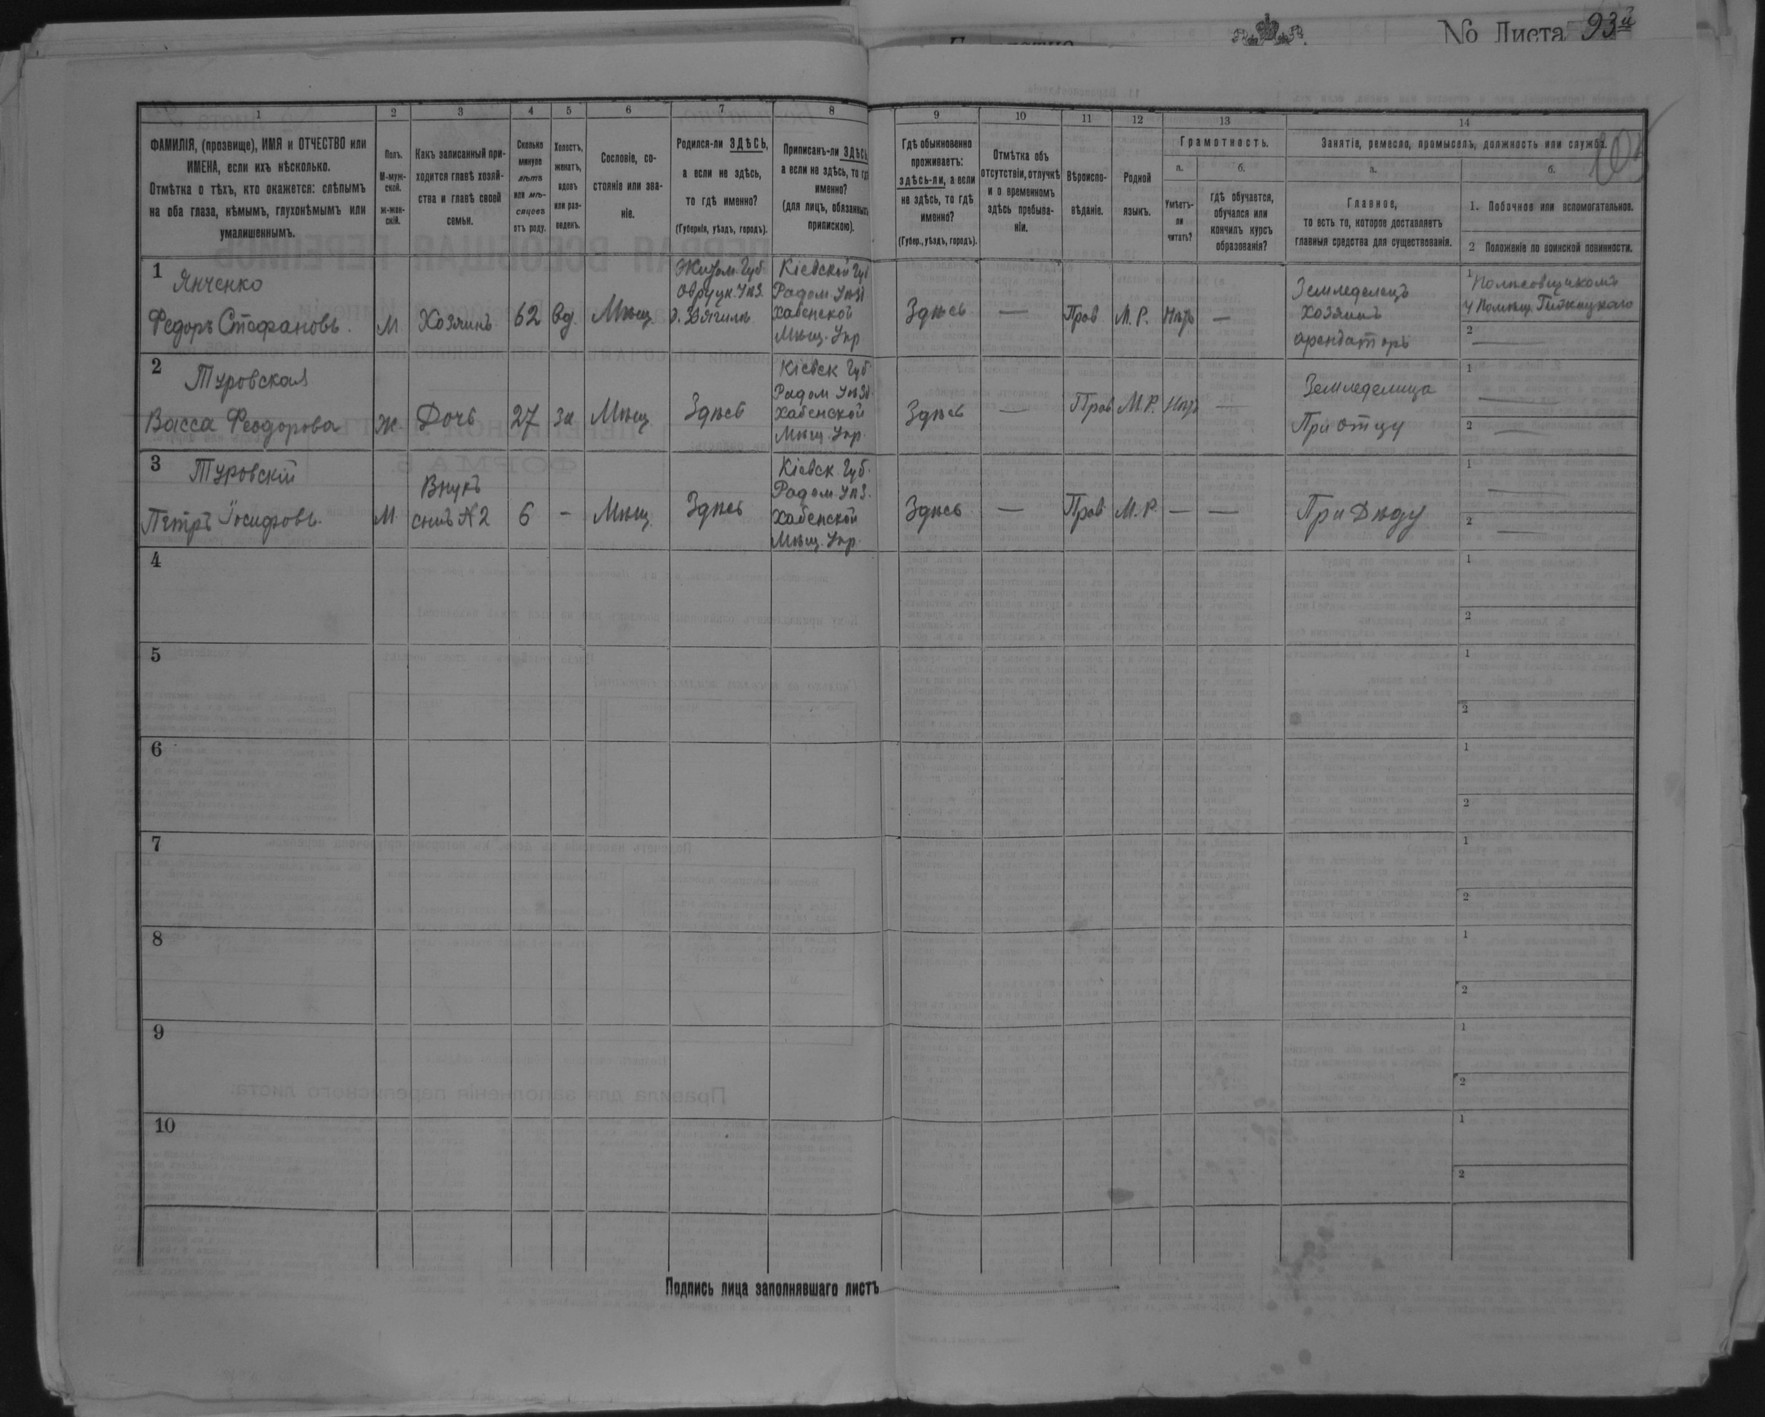 No Листа 93й
1
2
3
4
5
6
7
8
9
10
11
12
13
14
ФАМИЛІЯ, (прозвище), ИМЯ и ОТЧЕСТВО или
ИМЕНА, если ихъ нѣсколько.
Отмѣтка о тѣхъ, кто окажется: слѣпымъ
на оба глаза, нѣмымъ, глухонѣмымъ или
умалишеннымъ.
Полъ.
М-муж-
ской.
Ж-жен-
скій.
Какъ записанный при-
ходится главѣ хозяй-
ства и главѣ своей
семьи.
Сколько
минуло
лѣтъ
или мѣ-
сяцевъ
отъ роду.
Холостъ,
женатъ,
вдовъ
или раз-
веденъ.
Сословіе, со-
стояніе или зва-
ніе.
Родился-ли ЗДѢСЬ,
а если не здѣсь,
то гдѣ именно?
(Губернія, уѣздъ, городъ).
Приписанъ-ли ЗДѢСЬ
а если не здѣсь, то гдѣ
именно?
(для лицъ, обязанныхъ
припискою).
Гдѣ обыкновенно
проживаетъ:
здѣсь-ли, а если
не здѣсь, то гдѣ
именно?
(Губер., уѣздъ, городъ).
Отмѣтка объ
отсутствіи, отлучкѣ
и о временномъ
здѣсь пребыва-
ніи.
Вѣроиспо-
вѣданіе.
Родной
языкъ.
Грамотность.
а.
Умѣетъ-
ли
читать?
б.
гдѣ обучается,
обучался или
кончилъ курсъ
образованія?
Занятіе, ремесло, промыселъ, должность или служба.
а.
Главное,
то есть то, которое доставляетъ
главныя средства для существованія.
б.
1. Побочное или вспомогательное.
2 Положеніе по воинской повинности.
1
Янченко
Федоръ Стефановъ.
М
Хозяинъ
62
вд.
Мѣщ.
Житом. Губ.
Овруцк. Уѣз.
Кіевской Губ
Радом Уѣз
Хабенской
Мѣщ. Упр
Здѣсь
—
Прав
М. Р.
Нѣтъ
—
Земледелецъ
хозяинъ
арендаторъ
1
Полѣсовщикомъ
2 —
2
Туровская
Васса Феодорова
Ж.
Дочь
27
за
Мѣщ
Здѣсь
Кіевск Губ
Радом Уѣз
Хабенской
Мѣщ. Упр.
Здѣсь
—
Прав
М. Р.
Нѣтъ
—
Земледелица
При отцу
1 —
2 —
3
Туровскій
Петръ Іосифовъ.
М
Внукъ
сынъ №2
6
—
Мѣщ
Здѣсь
Кіевск. Губ.
Радом. Уѣз.
Хабенской
Мѣщ. Упр.
Здѣсь
—
Прав
М. Р
—
—
При Дѣду
1 —
2 —
4
1
2
5
1
2
6
1
2
7
1
2
8
1
2
9
1
2
10
1
2
Подпись лица заполнявшаго листъ